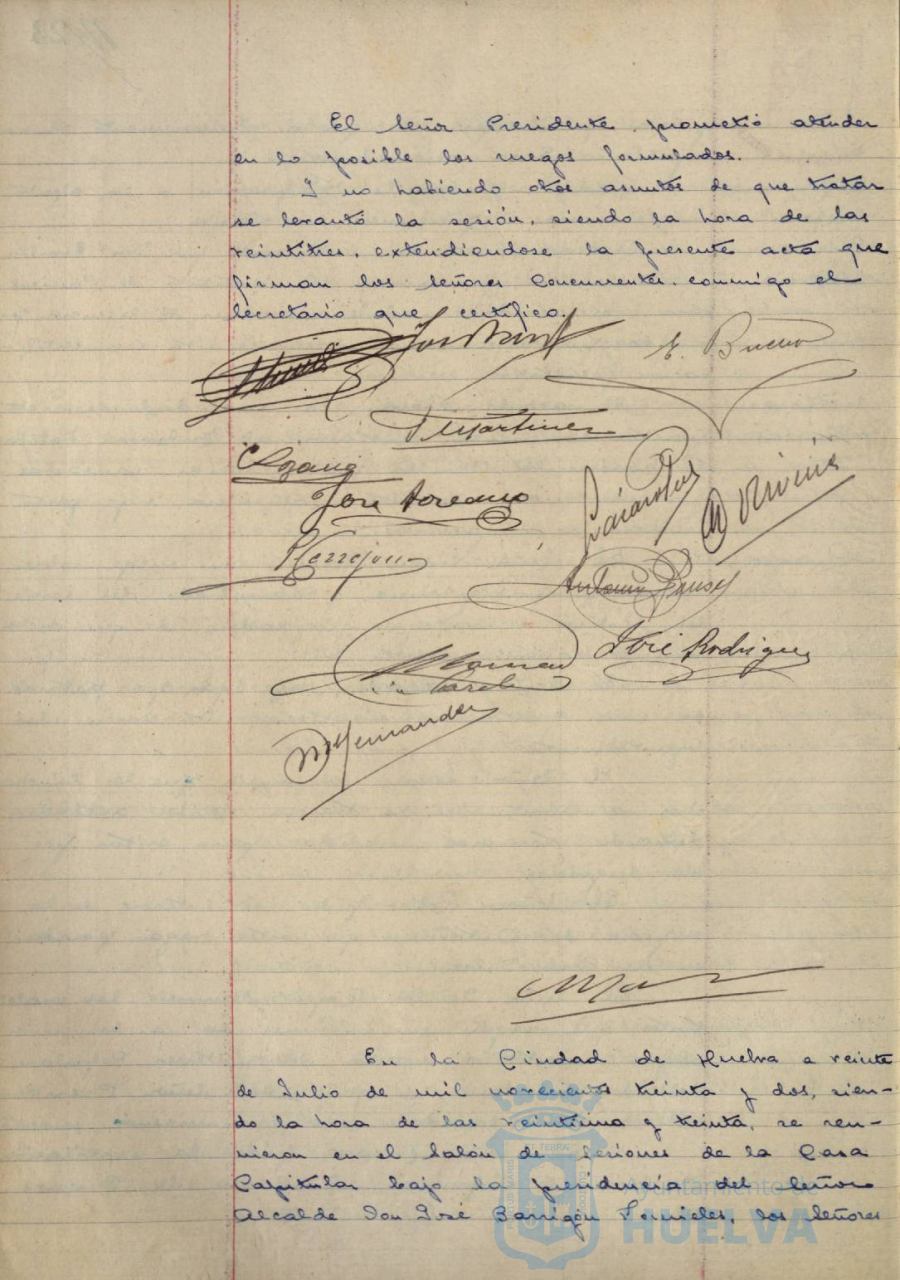 El Señor Presidente, prometió atender
en lo posible los ruegos formulados.
Y no habiendo otros asuntos de que tratar
se levantó la sesión, siendo la hora de las
veintitres, extendiendose la presente acta que
firman los Señores Concurrentes, conmigo el
Secretario que certifico.
E. Bueno
Martinez
José
Antonio
José Rodriguez
Hernandez
En la Ciudad de Huelva a veinte
de Julio de mil novecientos treinta y dos, sien-
do la hora de las veintiuna y treinta, se reu-
nieron en el Salón de Sesiones de la Casa
Capitular bajo la presidencia del Señor
Alcalde Don José Barrigón Fornieles, los Señores
Ayuntamiento de
HUELVA